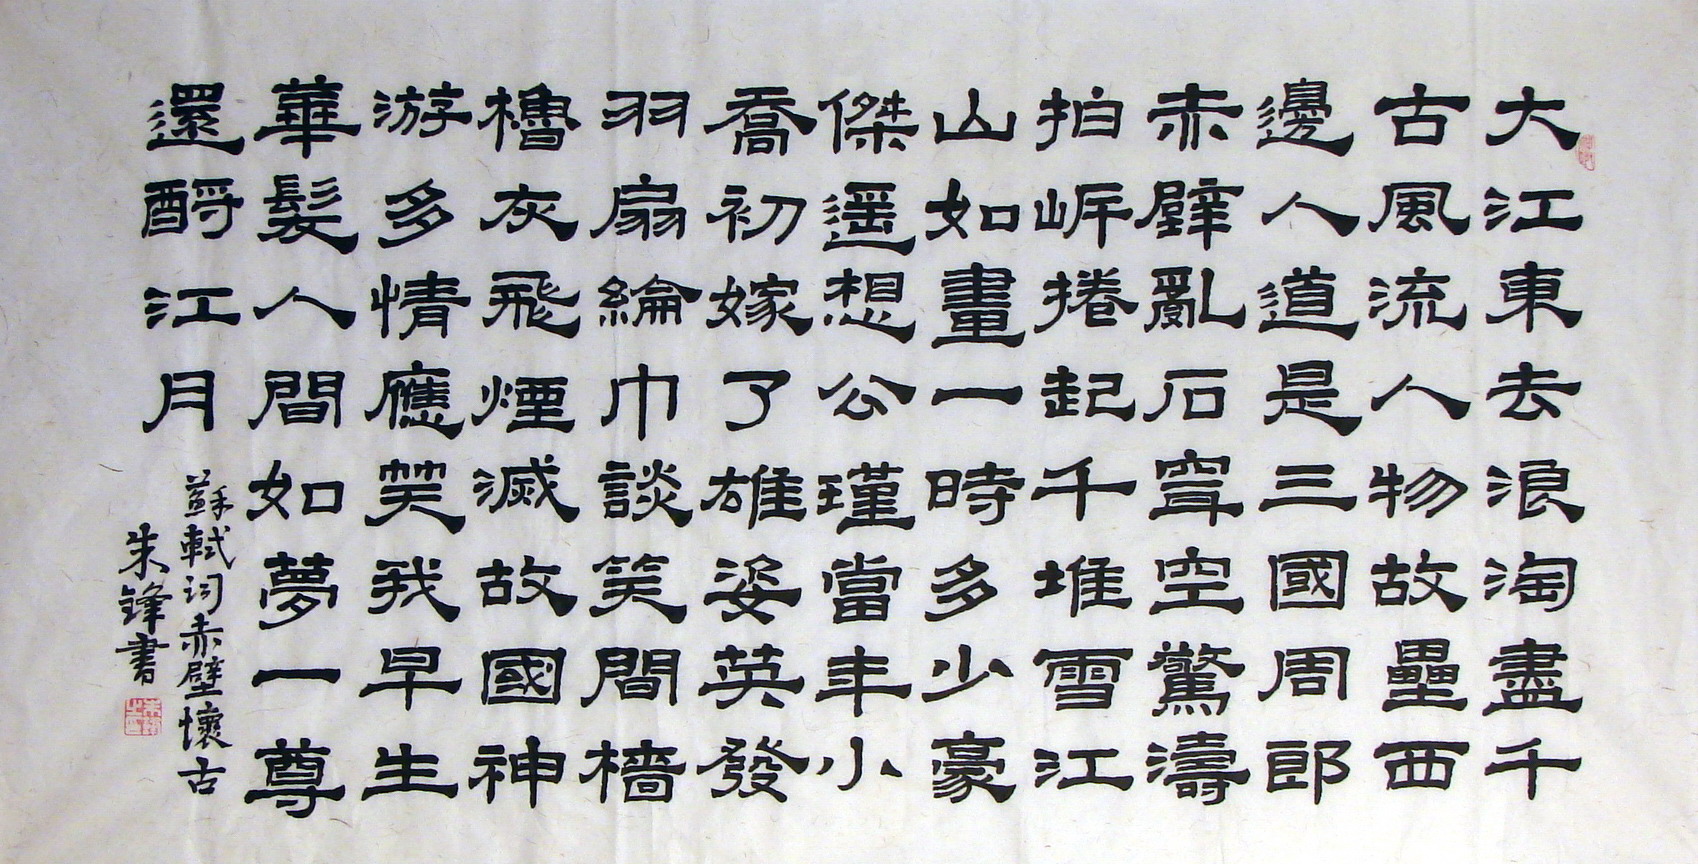 大江東去浪淘盡千
古風流人物故壘西
邊人道是三國周郎
赤壁亂石穿空驚濤
拍岸捲起千堆雪江
山如畫一時多少豪
傑遥想公瑾當年小
喬初嫁了雄姿英發
羽扇綸巾談笑間檣
櫓灰飛煙滅故國神
游多情應笑我早生
華髮人間如夢一尊
還酹江月
蘇軾詞赤壁懷古
朱鋒書